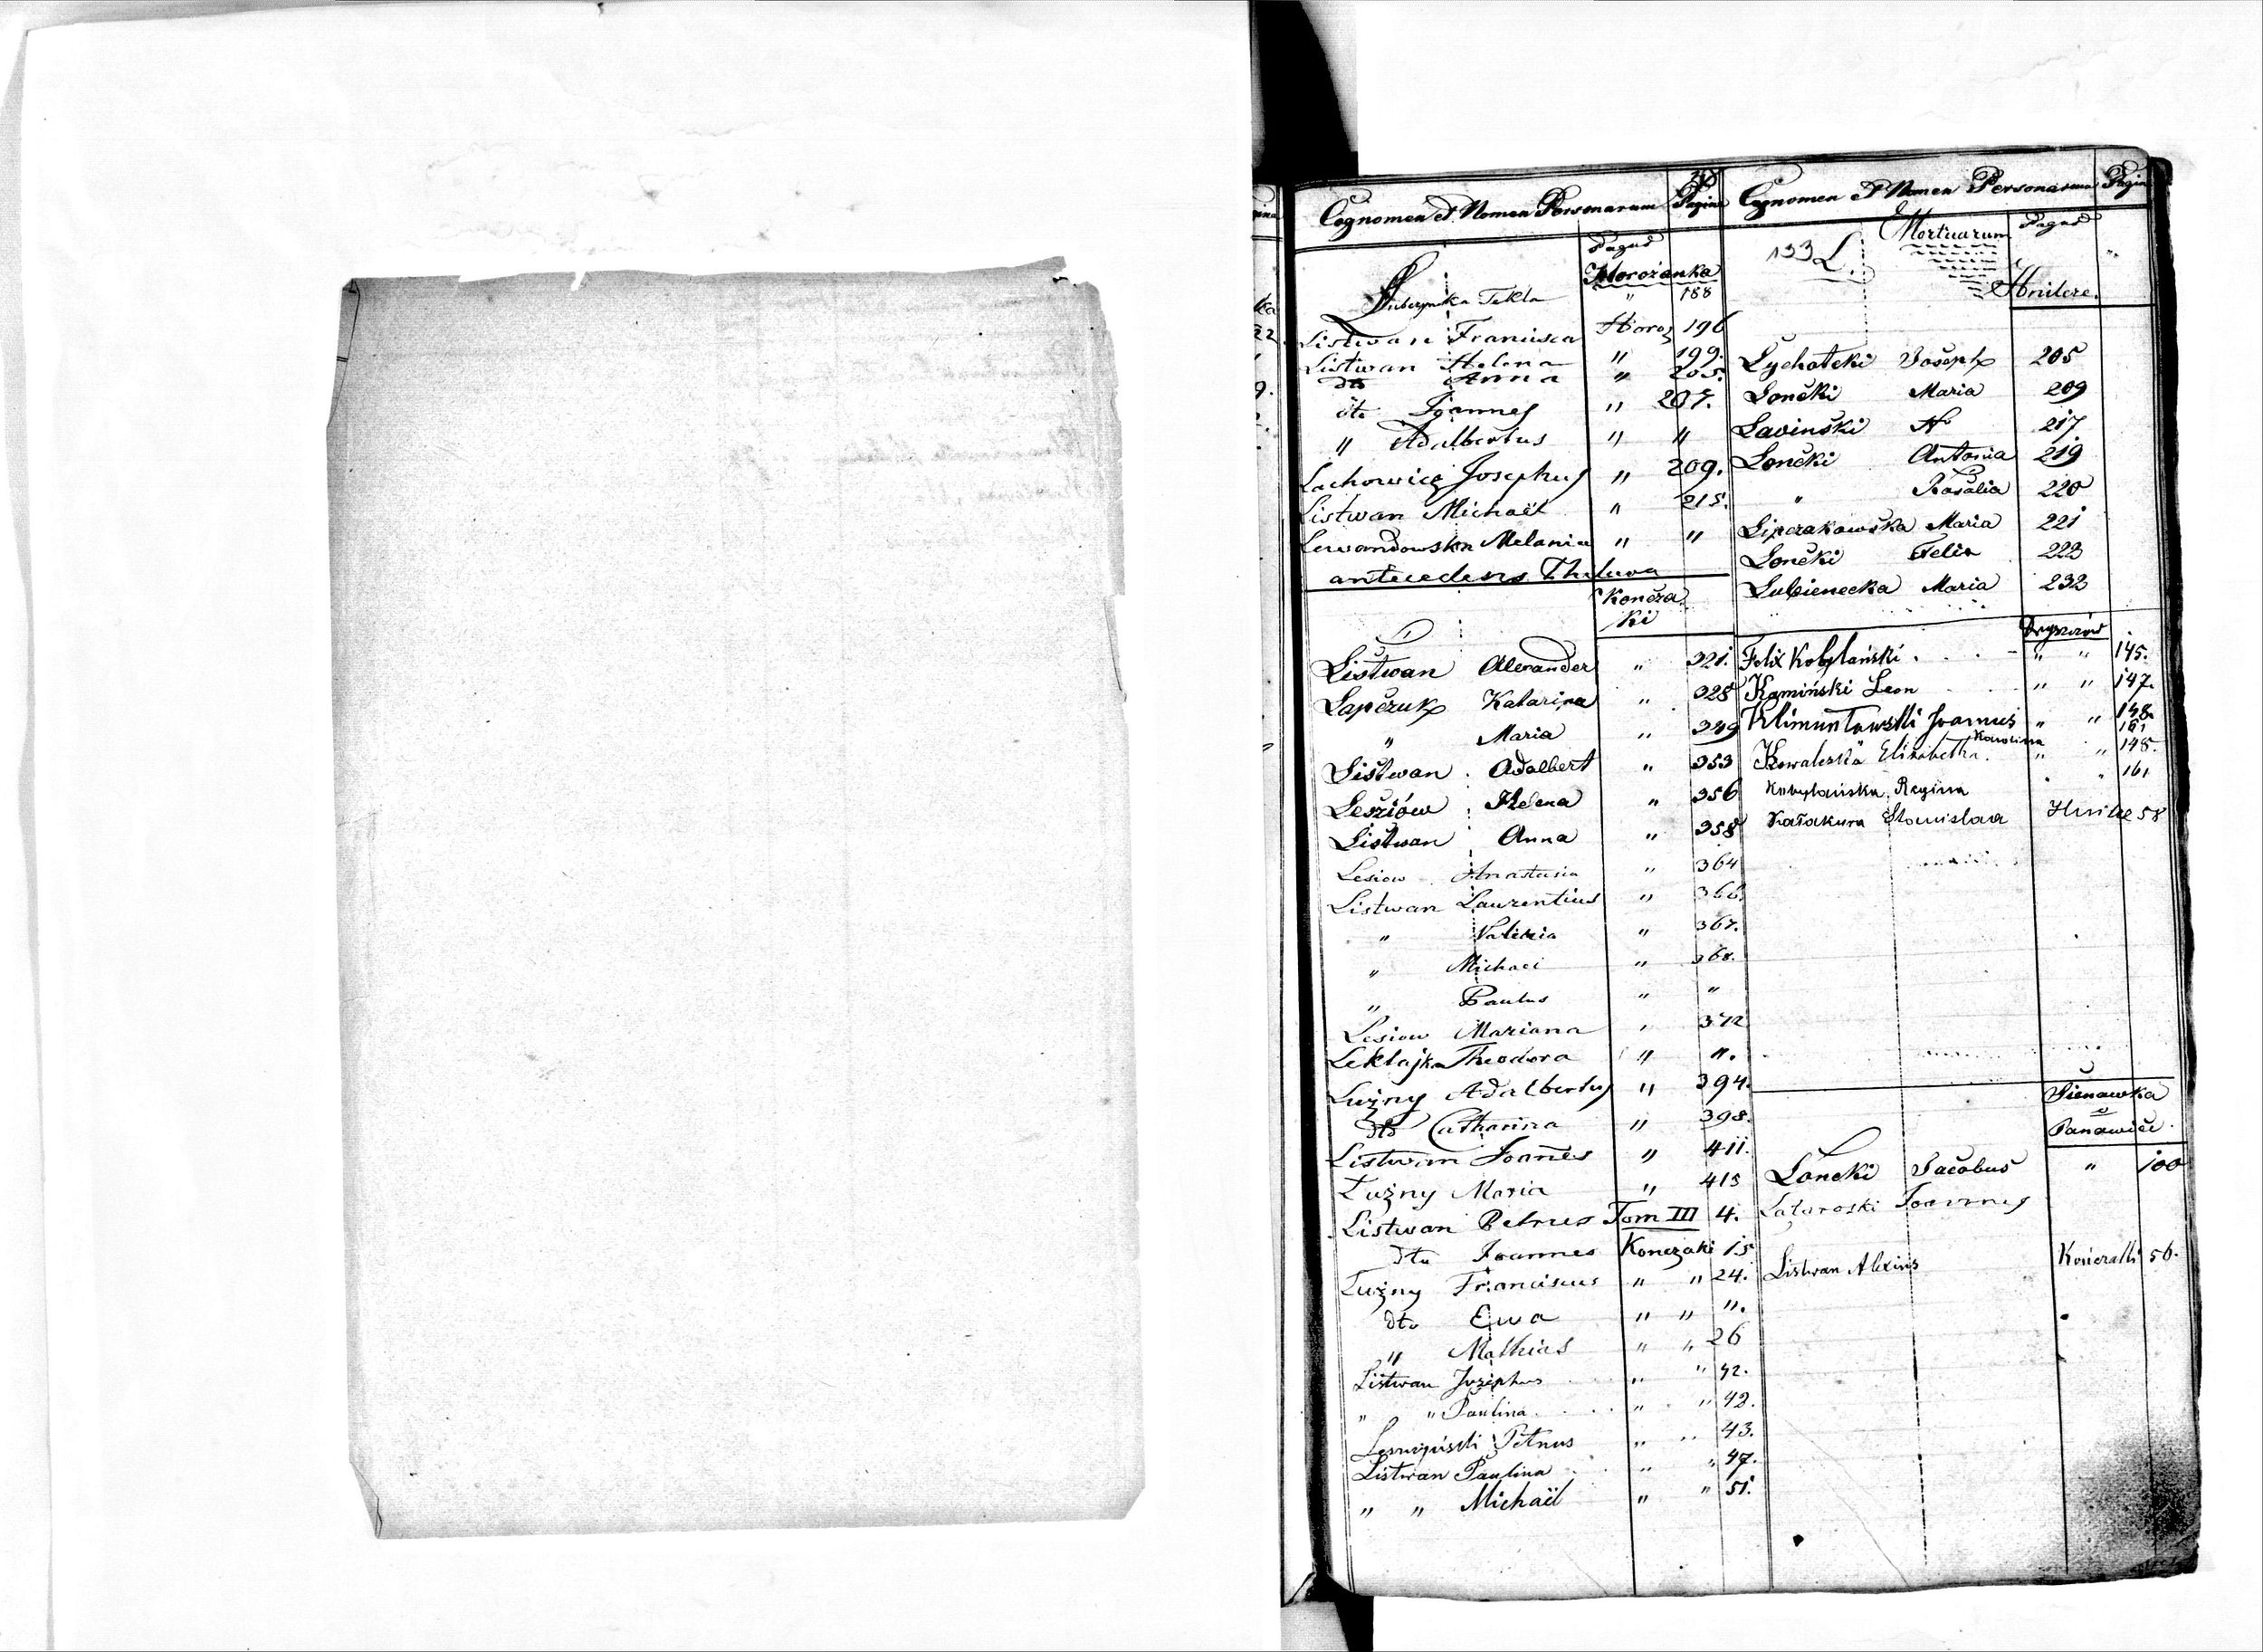 Cognomen et Nomen Personarum Pagina
Pagus
Horożanka
Tekla " 188
Listwan Francisca Horoż 196
Listwan Helena " 199.
dto Anna " 205.
dto Joannes " 207.
" Adalbertus " "
Lachowicz Josephus " 209.
Listwan Michaël " 215.
Lewandowska Melania " "
antecedens Thelusa
Koncza
ki
Listwan Alexander " 321.
Łapczuk Katarina " 328
" Maria " 349
Listwan Adalbert " 353
Lesziów Helena " 356
Listwan Anna " 358
Lesiow Anastasia " 364
Listwan Laurentius " 366.
" Valeria " 367.
" Michael " 368.
" Paulus " "
Lesiow Mariana " 372
Leklajka Theodora " ".
Łużny Adalbertus " 394.
dto Catharina " 398.
Listwan Joannes " 411.
Łużny Maria " 415
Listwan Petrus Tom III 4.
dto Joannes Konczaki 15
Łużny Franciscus " " 24.
dto Ewa " " ".
" Mathias " " 26
Listwan Josephus " " 42.
" " Paulina " " 42.
Petrus " " 43.
Listwan Paulina " " 47.
" " Michaël " " 51.
Cognomen et Nomen Personarum Pagin
133 L. Mortuarum Pagus "
Hnilcze.
Łychotcki Joseph 205
Loncki Maria 209
Lavinski N 217
Loncki Antonia 219
" Rosalia 220
Lipczakowska Maria 221
Loncki Felix 223
Lubieniecka Maria 232
Felix Kobylański " " 145.
Kamiński Leon " " 147.
Klimuntowski Joannes " " 148.
161
Kowalerska Elisabetha Karolina " " 148.
Kobylańska Regina " " 161
Katakura Stanislava Hnilce 58
Sienawka
et
Panawice
Loncki Jacobus " 100
Lataroski Joannes
Listwan Alexius Konczaki 56.